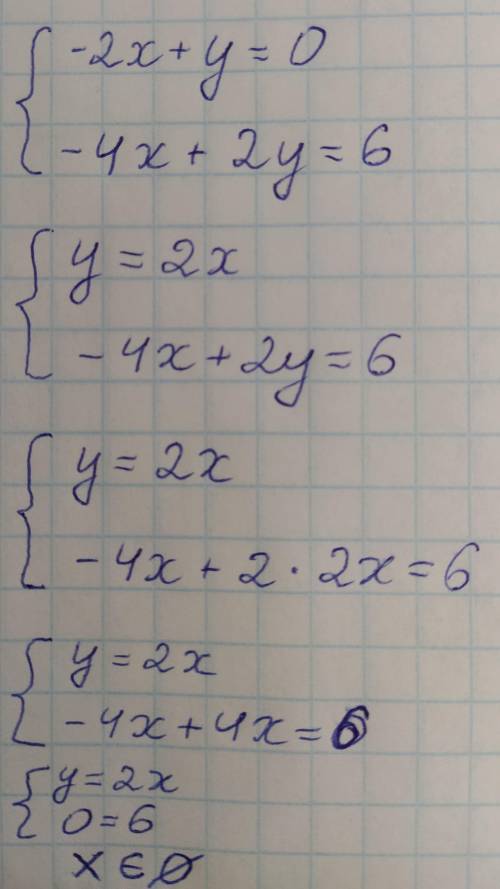 -2x+y=0
-4x+2y=6
y=2x
-4x+2y=6
y=2x
-4x+2·2x=6
y=2x
-4x+4x=6
y=2x
0=6
x∈∅